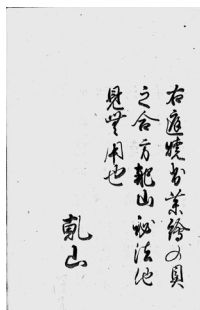 右庭焼出葉絵の具
之合方乾山秘法他
見無用也
乾山